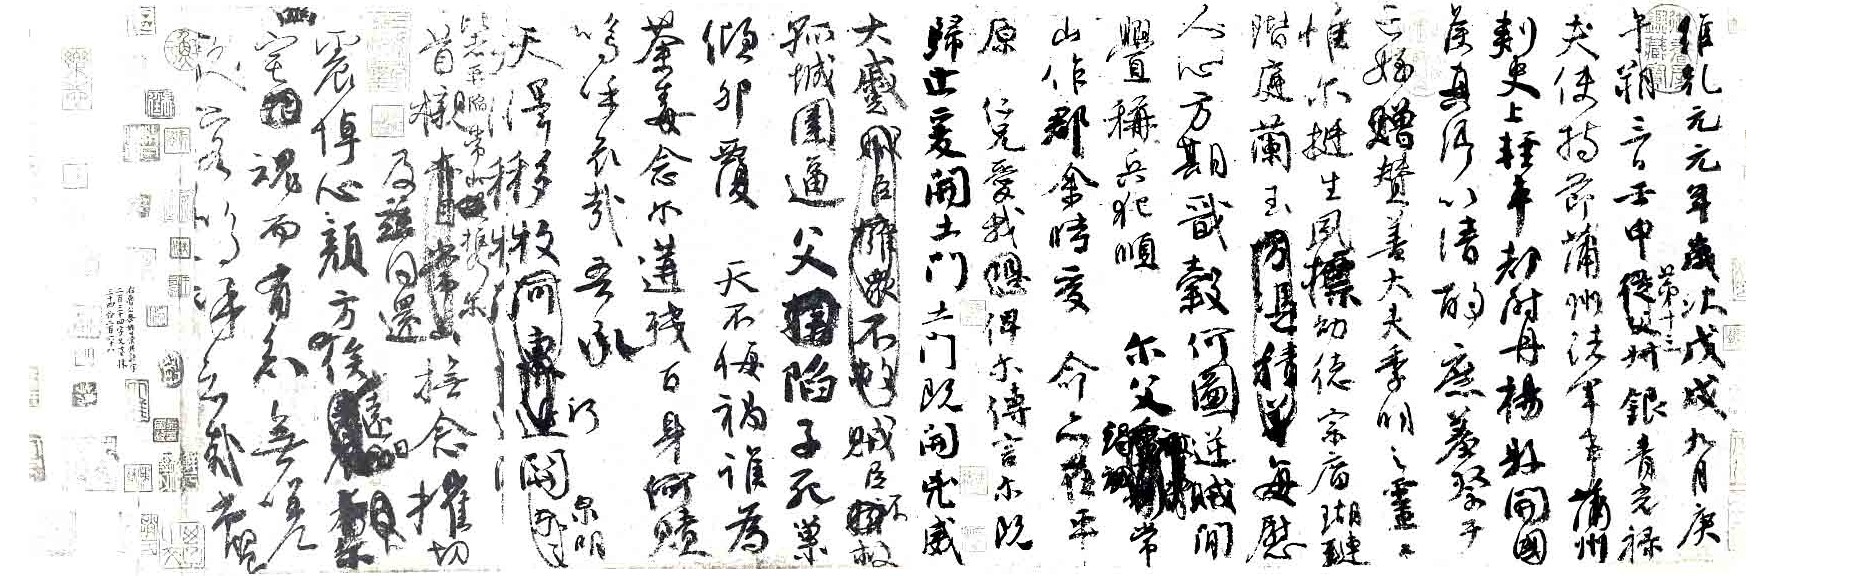 維乾元元年歲次戊戌九月庚
午朔三日壬申第十三叔銀青光祿
夫使持節蒲州諸軍事蒲州
刺史上輕車都尉丹楊縣開國
侯真卿以清酌庶羞祭于
亡姪贈贊善大夫季明之靈曰
惟爾挺生夙標幼德宗廟瑚璉
階庭蘭玉每慰
人心方期戩穀何圖逆賊間
釁稱兵犯順爾父竭誠常
山作郡余時受命亦在平
原仁兄愛我俾爾傳言爾既
歸止爰開土門土門既開兇威
大蹙賊臣不救
孤城圍逼父陷子死巢
傾卵覆天不悔禍誰為
荼毒念爾遘殘百身何贖
嗚呼哀哉吾承
天澤移牧河關泉明
比者再陷常山攜爾
首櫬及茲同還撫念摧切
震悼心顏方俟遠日
幽宅魂而有知無嗟
久客嗚呼哀哉尚饗